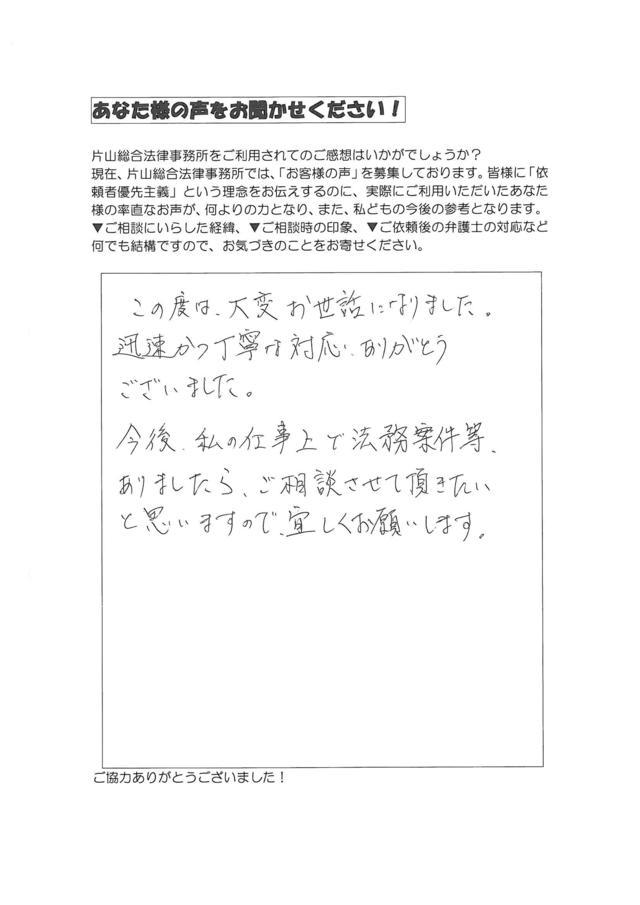 あなた様の声をお聞かせください！
片山総合法律事務所をご利用されてのご感想はいかがでしょうか？
現在、片山総合法律事務所では、「お客様の声」を募集しております。皆様に「依
頼者優先主義」という理念をお伝えするのに、実際にご利用いただいたあなた
様の率直なお声が、何よりの力となり、また、私どもの今後の参考となります。
▼ご相談にいらした経緯、▼ご相談時の印象、▼ご依頼後の弁護士の対応など
何でも結構ですので、お気づきのことをお寄せください。
この度は、大変お世話になりました。
迅速かつ丁寧な対応、ありがとう
ございました。
今後、私の仕事上で法務案件等、
ありましたら、ご相談させて頂きたい
と思いますので、宜しくお願いします。
ご協力ありがとうございました！